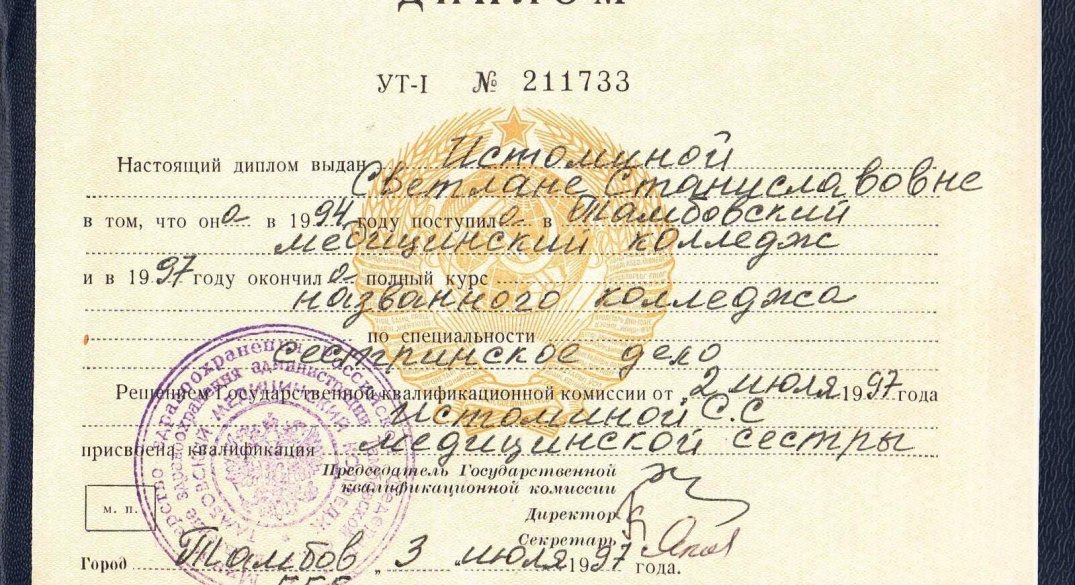 ДИПЛОМ
УТ-I № 211733
Настоящий диплом выдан Истоминой
Светлане Станиславовне
в том, что она в 1994 году поступила в Тамбовский
медицинский колледж
и в 1997 году окончила полный курс
названного колледжа
по специальности
сестринское дело
Решением Государственной квалификационной комиссии от „2 июля 1997 года
Истоминой С.С
присвоена квалификация медицинской сестры
Председатель Государственной
квалификационной комиссии
Директор
м. п.
Секретарь
Город Тамбов „ 3 „ июля 1997 года.